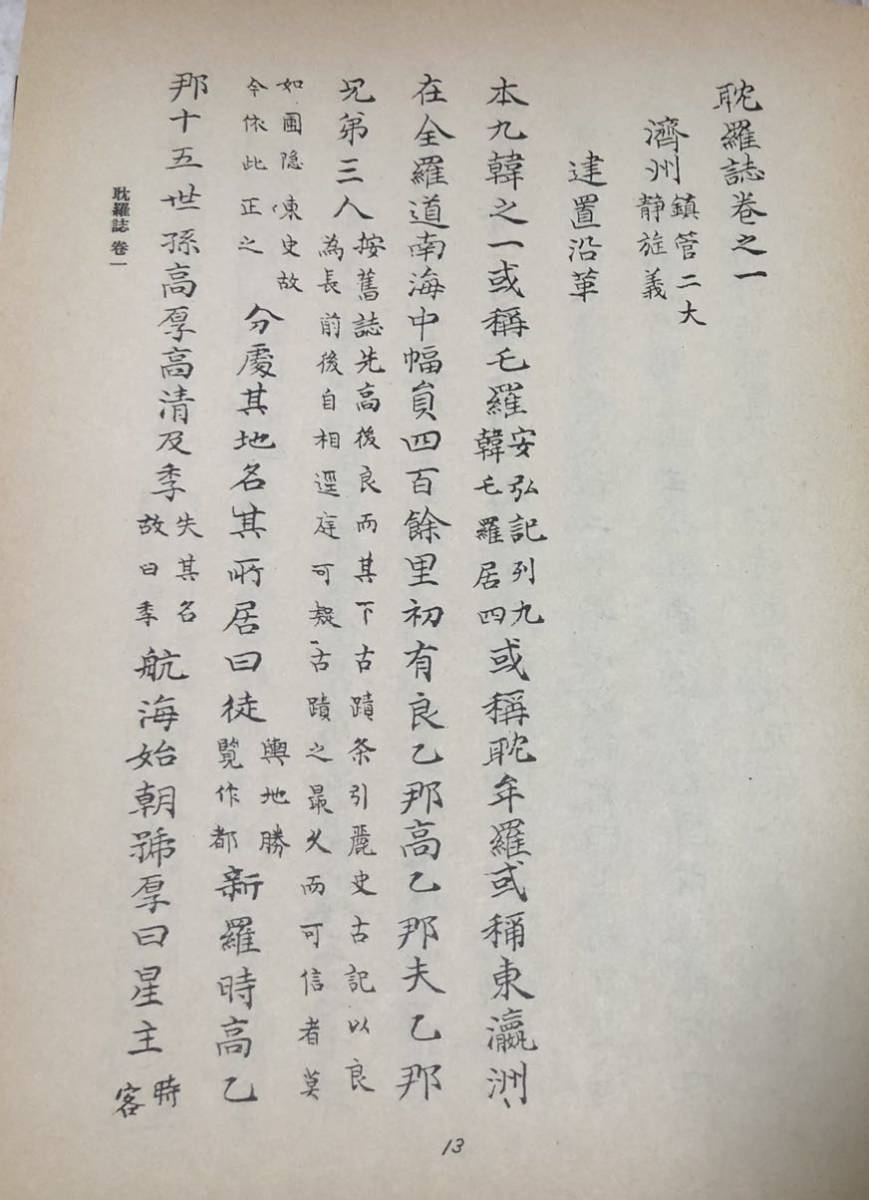 耽羅誌卷之一
濟州鎮管二大静旌義
建置沿革
本九韓之一或稱乇羅安弘記列九韓乇羅居四或稱耽牟羅或稱東瀛洲
在全羅道南海中幅員四百餘里初有良乙那高乙那夫乙那
兄弟三人按舊誌先高後良而其下古蹟条引麗史古記以良為長前後自相逕庭可疑古蹟之最久而可信者莫
如圃隐史故今依此正之分處其地名其所居曰徒輿地勝覽作都新羅時高乙
那十五世孫高厚高清及季失其名故曰季航海始朝號厚曰星主時客
耽羅誌 卷一
13